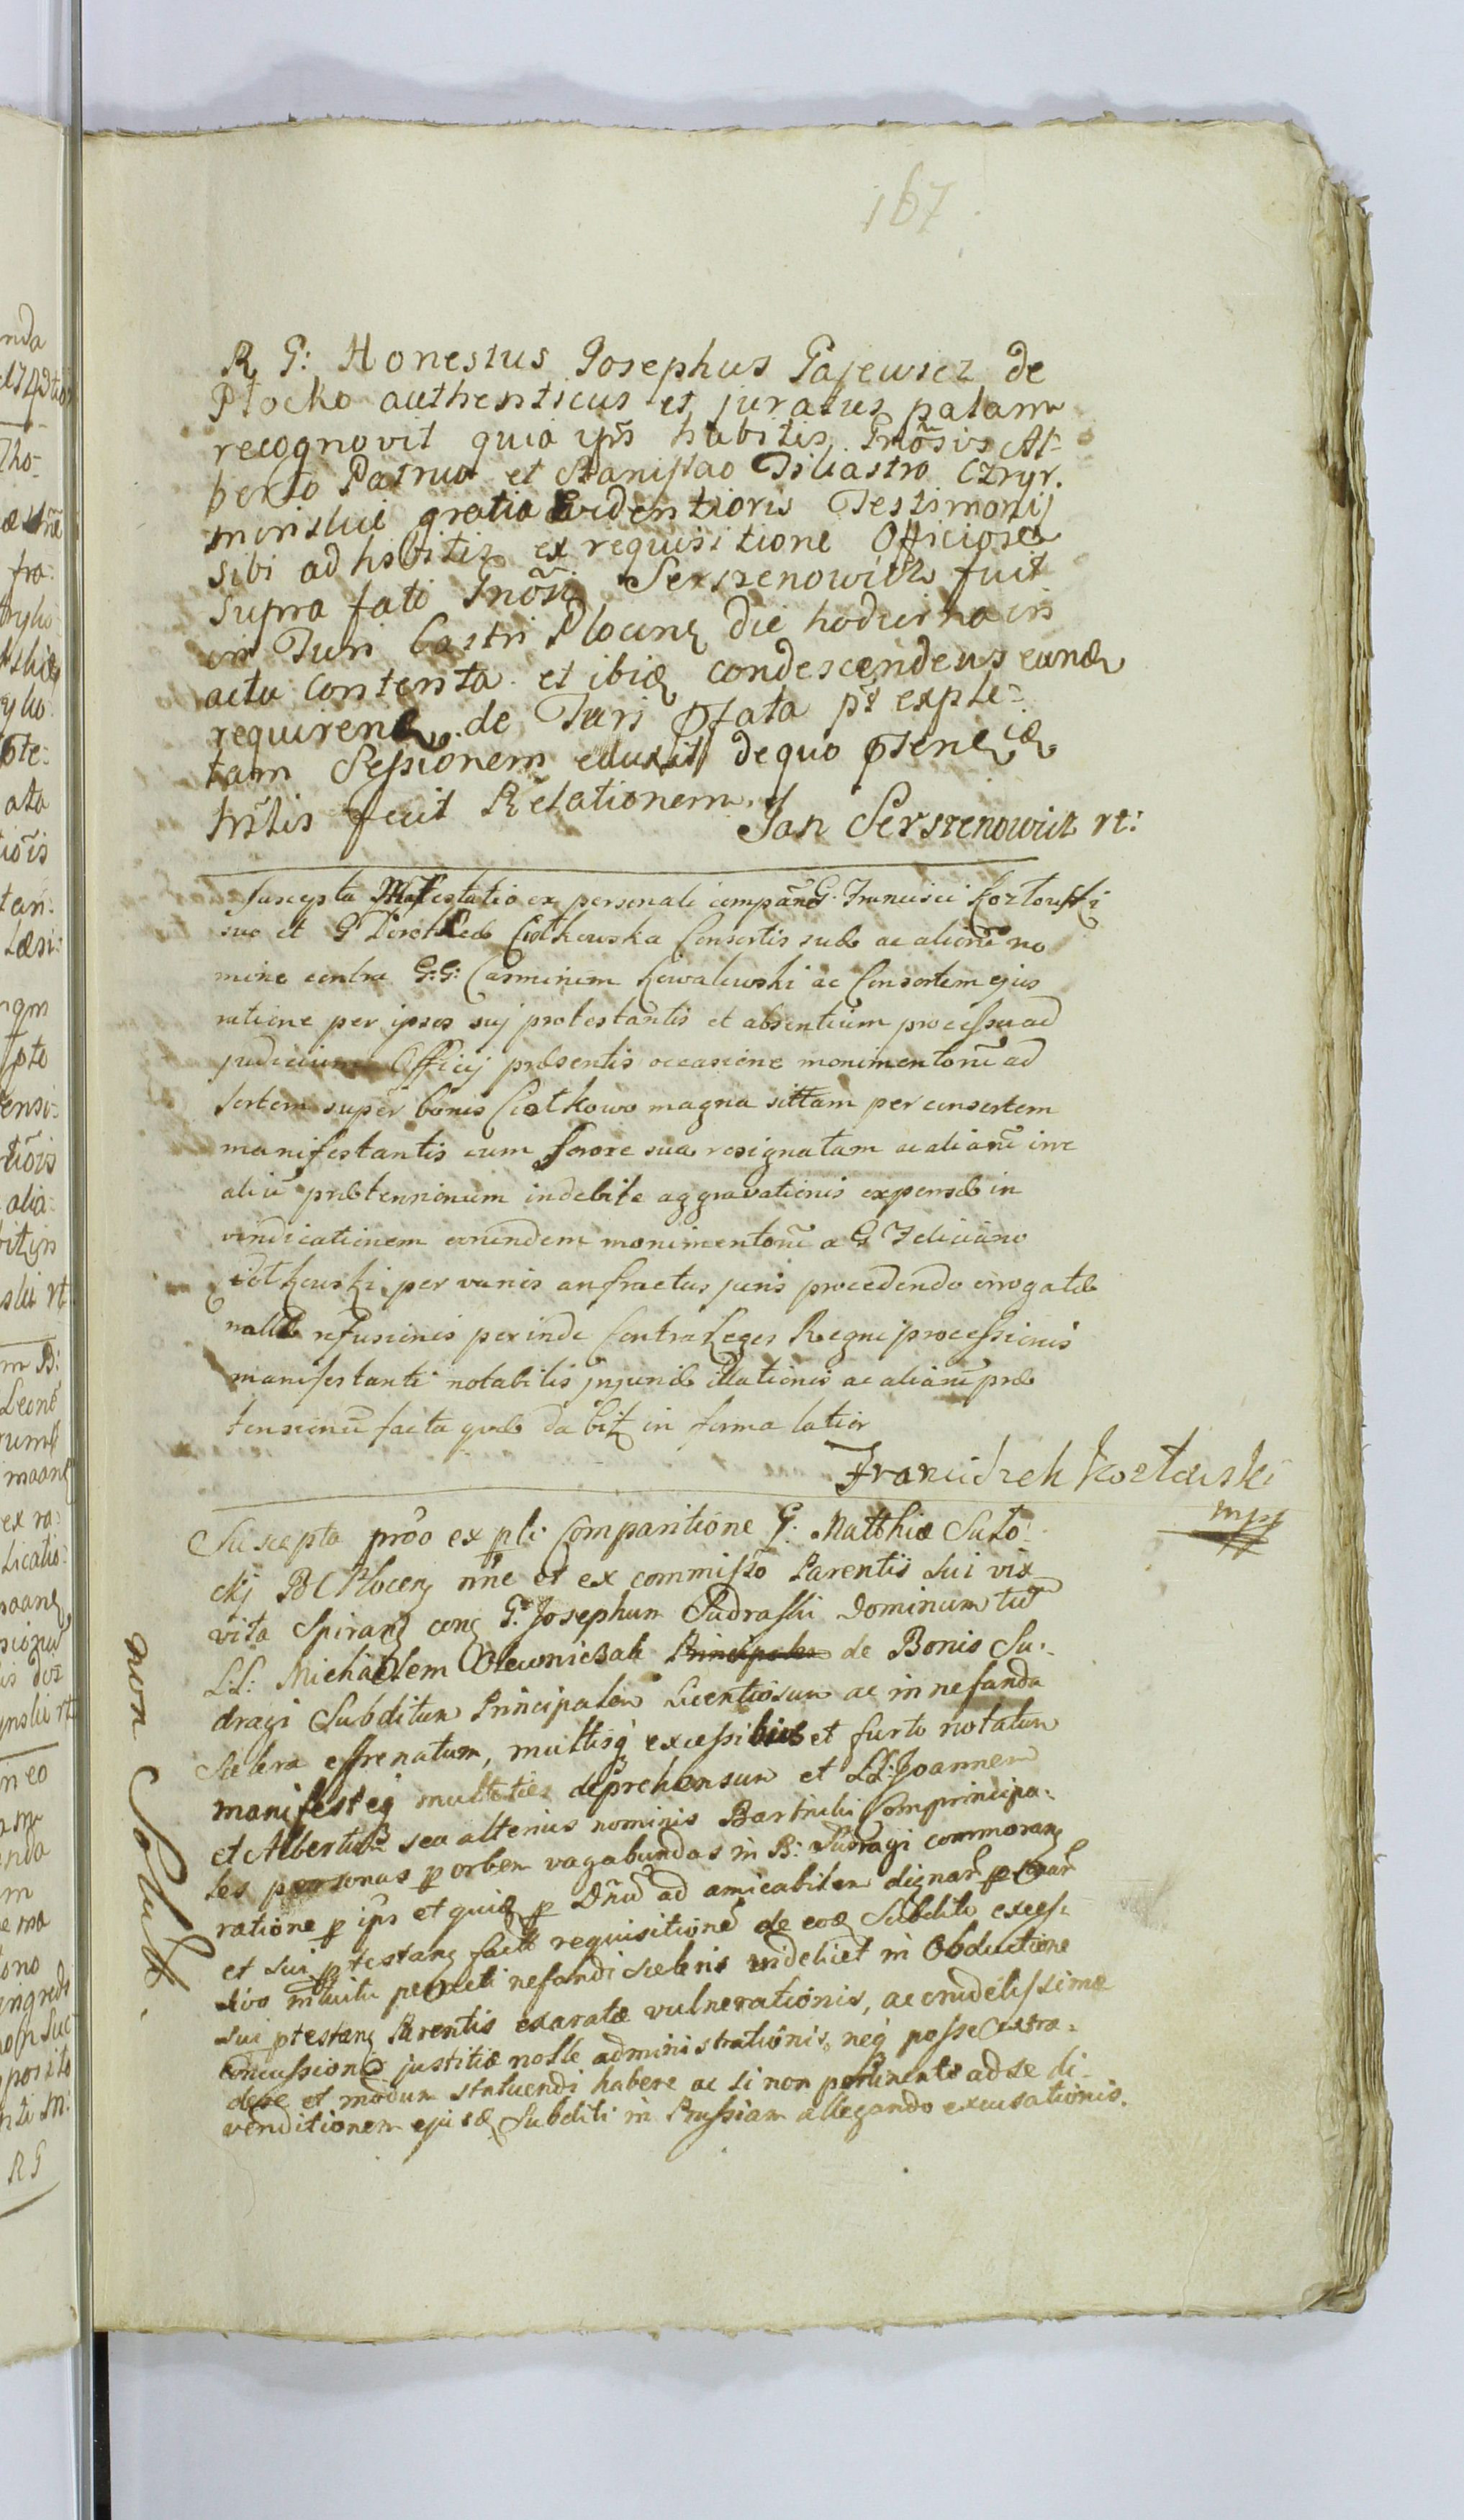 167
R G: Honestus Josephus Gajewicz de
Płocko authenticus et juratus palam
recognovit quia ips habitis Gnosis Al-
berto Patruo et Stanislao Filiastro Czryr.
minskie gratia Evidentioris Testimonij
sibi adhibitis ex requisitione Officiosa
supra fati Gnosi Serszenowicz fuit
in Turi Castri Plocen die hodierna in
actu contenta et ibiq condescendens eand
requirend de Turi pfata pt exple-
tam Sessionem eduxit de quo ptenciæ
hmlis fecit Relationem
Jan Serszenowicz rt:
Suscepta Mafestatio ex personali companē G. Francisci Kozłowski
suo et G Dorotheæ Ciołkowska Consortis suæ ac alionē no
mine contra G:G: Casmirum Kowalewski ac Consortem ejus
ratione per ipsos suj protestantis et absentium processu ad
judicium Officij præsentis occasione monimentorū ad
sortem super bonis Ciołkowo magna sittam per consortem
manifestantis cum sorore sua resignatam ac aliarū irre
aliū prætensionum indebite aggravationis expensæ in
vindicationem eorundem monimentorū a G Feliciano
Ciołkowski per varios anfractus juris procedendo irrogatæ
nullæ refusionis perinde Contra Leges Regni processionis
manifestanti notabilis injuriæ illationis ac aliarū præ
tensionū facta quæ dabit in forma latior
Franciszek Kozłowski
mpp
Suscepta prō ex pli: Comparitione G. Matthiæ Suto-
ckj BC Plocen nne et ex commisso Parentis sui vix
vita Spiranz conz G. Josephum Sudraski Dominum tū
L:L: Michaelem Olewniczak Principalem de Bonis Su-
dragi Subditum Principalem Licentiosum ac in nefanda
scelera effrenatum, multisq excessibus et furto notatum
manifesteq multoties deprehensum et LL: Joannem
et Albertum seu alterius nominis Bartniki Comprincipa-
les personas p orbem vagabundas in B: Sudragi commoranz
ratione p ips et quiq p Dnū ad amicabilem
et sui ptestanz factæ requisitionē de eoq Subdito exces-
sivo intuitu peracti nefandi sceleris videlicet in Obductione
sui ptestanz Parentis exaratæ vulnerationis, ac crudelissimæ
Concussionis justitiæ nolle administrationis, neq posse extra-
dere et modum statuendi habere ac si non pertinente ad se di-
venditionem ejusdq Subditi in Prussiam allegando excusationis.
non Solutt.